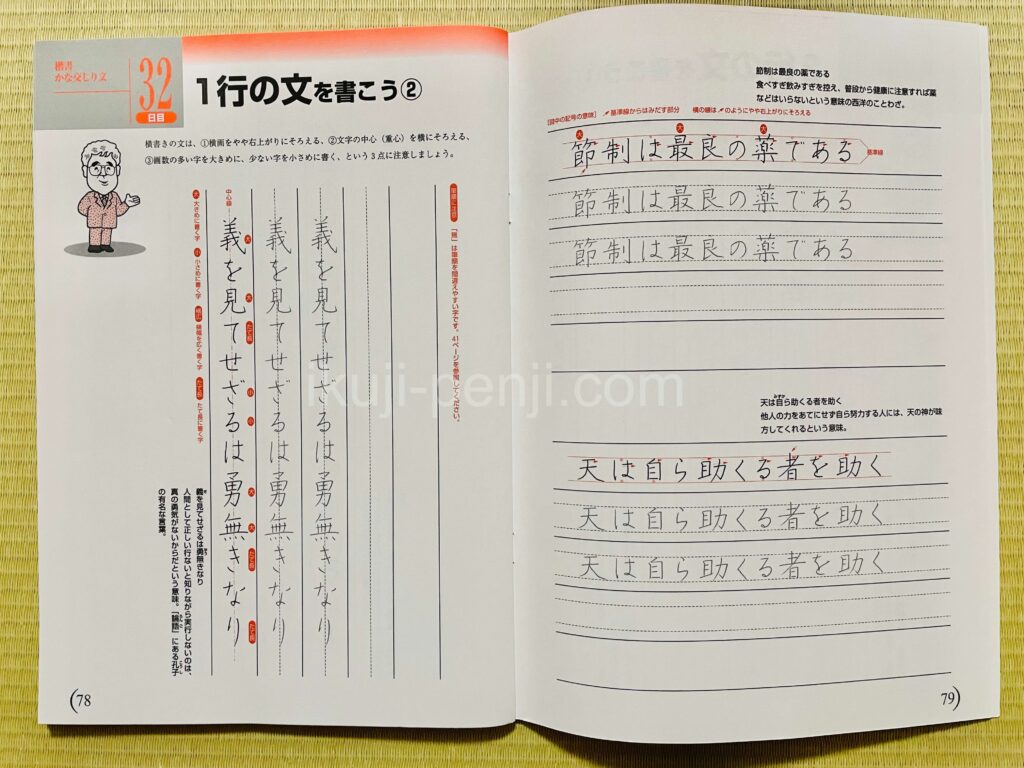 楷書
かな交じり文
32
日目
1行の文を書こう②
横書きの文は、①横画をやや右上がりにそろえる、②文字の中心（重心）を横にそろえる、
③画数の多い字を大きめに、少ない字を小さめに書く、という3点に注意しましょう。
筆順に注意 「無」は筆順を間違えやすい字です。41ページを参照してください。
義を見てせざるは勇無きなり
義を見てせざるは勇無きなり
中心線
義を見てせざるは勇無きなり
大 大 たて長 小 小 大 大 たて長 たて長
大 大きめに書く字
小 小さめに書く字
たて長 たて長に書く字
義を見てせざるは勇無きなり
人間として正しい行ないと知りながら実行しないのは、
真の勇気がないからだという意味。「論語」にある孔子
の有名な言葉。
78
節制は最良の薬である
食べすぎ飲みすぎを控え、普段から健康に注意すれば薬
などはいらないという意味の西洋のことわざ。
【図中の記号の意味】 基準線からはみだす部分 横の線は のようにやや右上がりにそろえる
大 大 大
節制は最良の薬である
基準線
節制は最良の薬である
節制は最良の薬である
天は自ら助くる者を助く
他人の力をあてにせず自ら努力する人には、天の神が味
方してくれるという意味。
天は自ら助くる者を助く
天は自ら助くる者を助く
天は自ら助くる者を助く
79
ikuji-penji.com